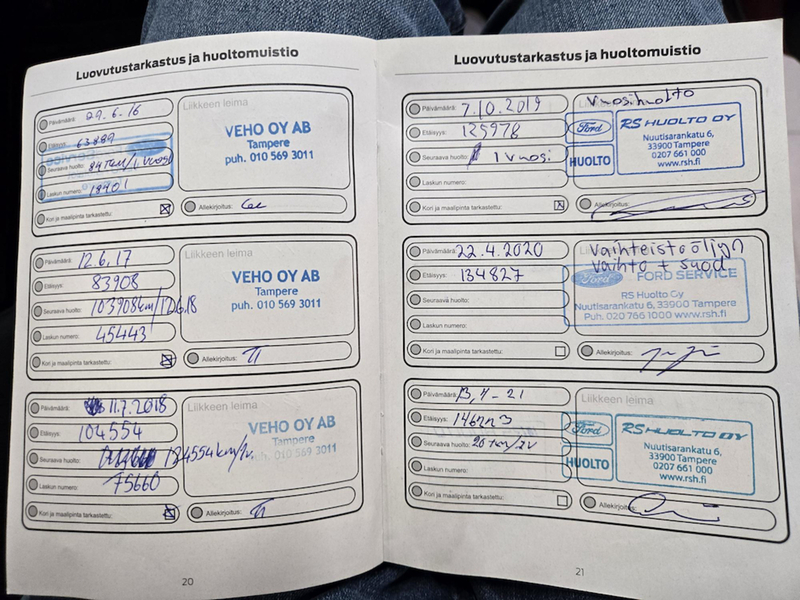 Luovutustarkastus ja huoltomuistio
Päivämäärä: 29.6.16
Etäisyys: 63889
Seuraava huolto: 84tkm/1 vuosi
Laskun numero: 18401
Kori ja maalipinta tarkastettu:
Liikkeen leima
VEHO OY AB
Tampere
puh. 010 569 3011
Allekirjoitus:
Päivämäärä: 12.6.17
Etäisyys: 83908
Seuraava huolto: 103908km/12.6.18
Laskun numero: 45443
Kori ja maalipinta tarkastettu:
Liikkeen leima
VEHO OY AB
Tampere
puh. 010 569 3011
Allekirjoitus:
Päivämäärä: 11.7.2018
Etäisyys: 104554
Seuraava huolto: 124554km/1v.
Laskun numero: 75660
Kori ja maalipinta tarkastettu:
Liikkeen leima
VEHO OY AB
Tampere
puh. 010 569 3011
Allekirjoitus:
20
Luovutustarkastus ja huoltomuistio
Päivämäärä: 7.10.2019
Etäisyys: 125978
Seuraava huolto: 1 vuosi
Laskun numero:
Kori ja maalipinta tarkastettu:
Vuosihuolto
Ford
HUOLTO
RS HUOLTO OY
Nuutisarankatu 6,
33900 Tampere
0207 661 000
www.rsh.fi
Allekirjoitus:
Päivämäärä: 22.4.2020
Etäisyys: 134827
Seuraava huolto:
Laskun numero:
Kori ja maalipinta tarkastettu:
Vaihteistoöljyn
vaihto + suod
Ford
FORD SERVICE
RS Huolto Oy
Nuutisarankatu 6, 33900 Tampere
Puh. 020 766 1000 www.rsh.fi
Allekirjoitus:
Päivämäärä:
Etäisyys:
Seuraava huolto: 20 tkm/1v
Laskun numero:
Kori ja maalipinta tarkastettu:
Liikkeen leima
Ford
HUOLTO
RS HUOLTO OY
Nuutisarankatu 6,
33900 Tampere
0207 661 000
www.rsh.fi
Allekirjoitus:
21